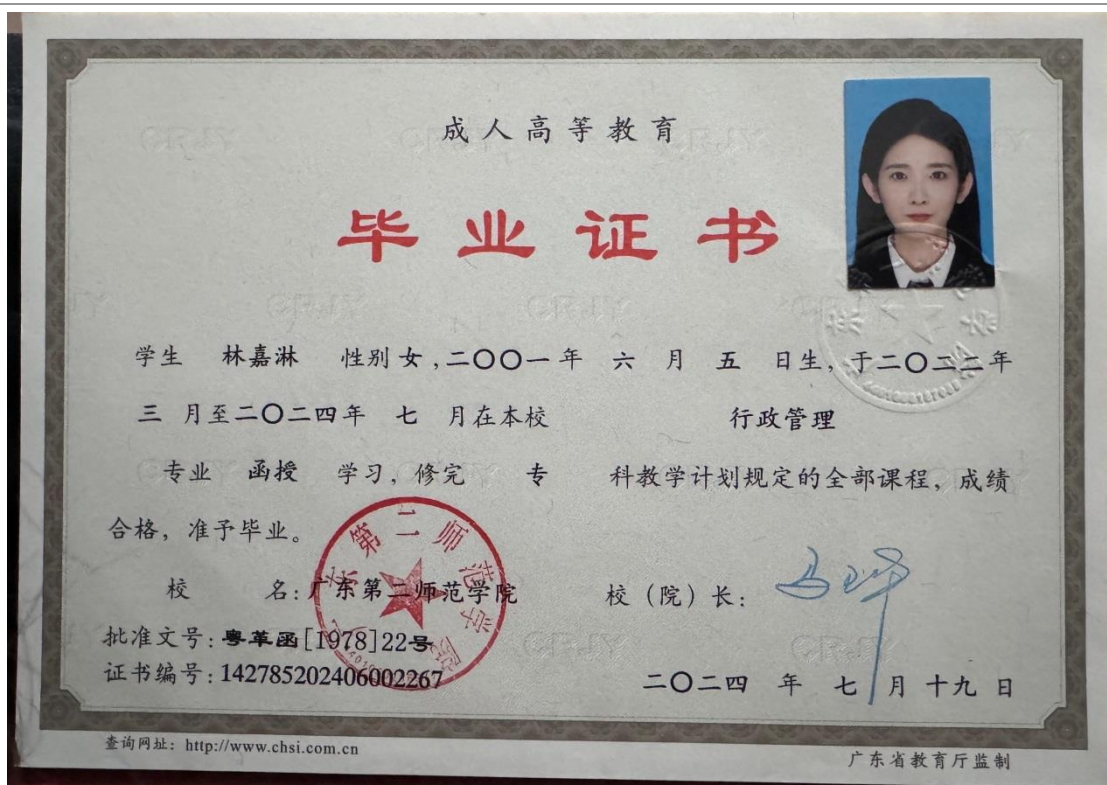 成人高等教育
毕业证书
学生 林嘉淋 性别 女，二〇〇一年 六 月 五 日生，于二〇二二年
三 月至二〇二四年 七 月在本校 行政管理
专业 函授 学习，修完 专 科教学计划规定的全部课程，成绩
合格，准予毕业。
校 名：广东第二师范学院 校（院）长：
批准文号：粤革函[1978]22号
证书编号：142785202406002267
二〇二四 年 七 月 十九 日
查询网址：http://www.chsi.com.cn
广东省教育厅监制